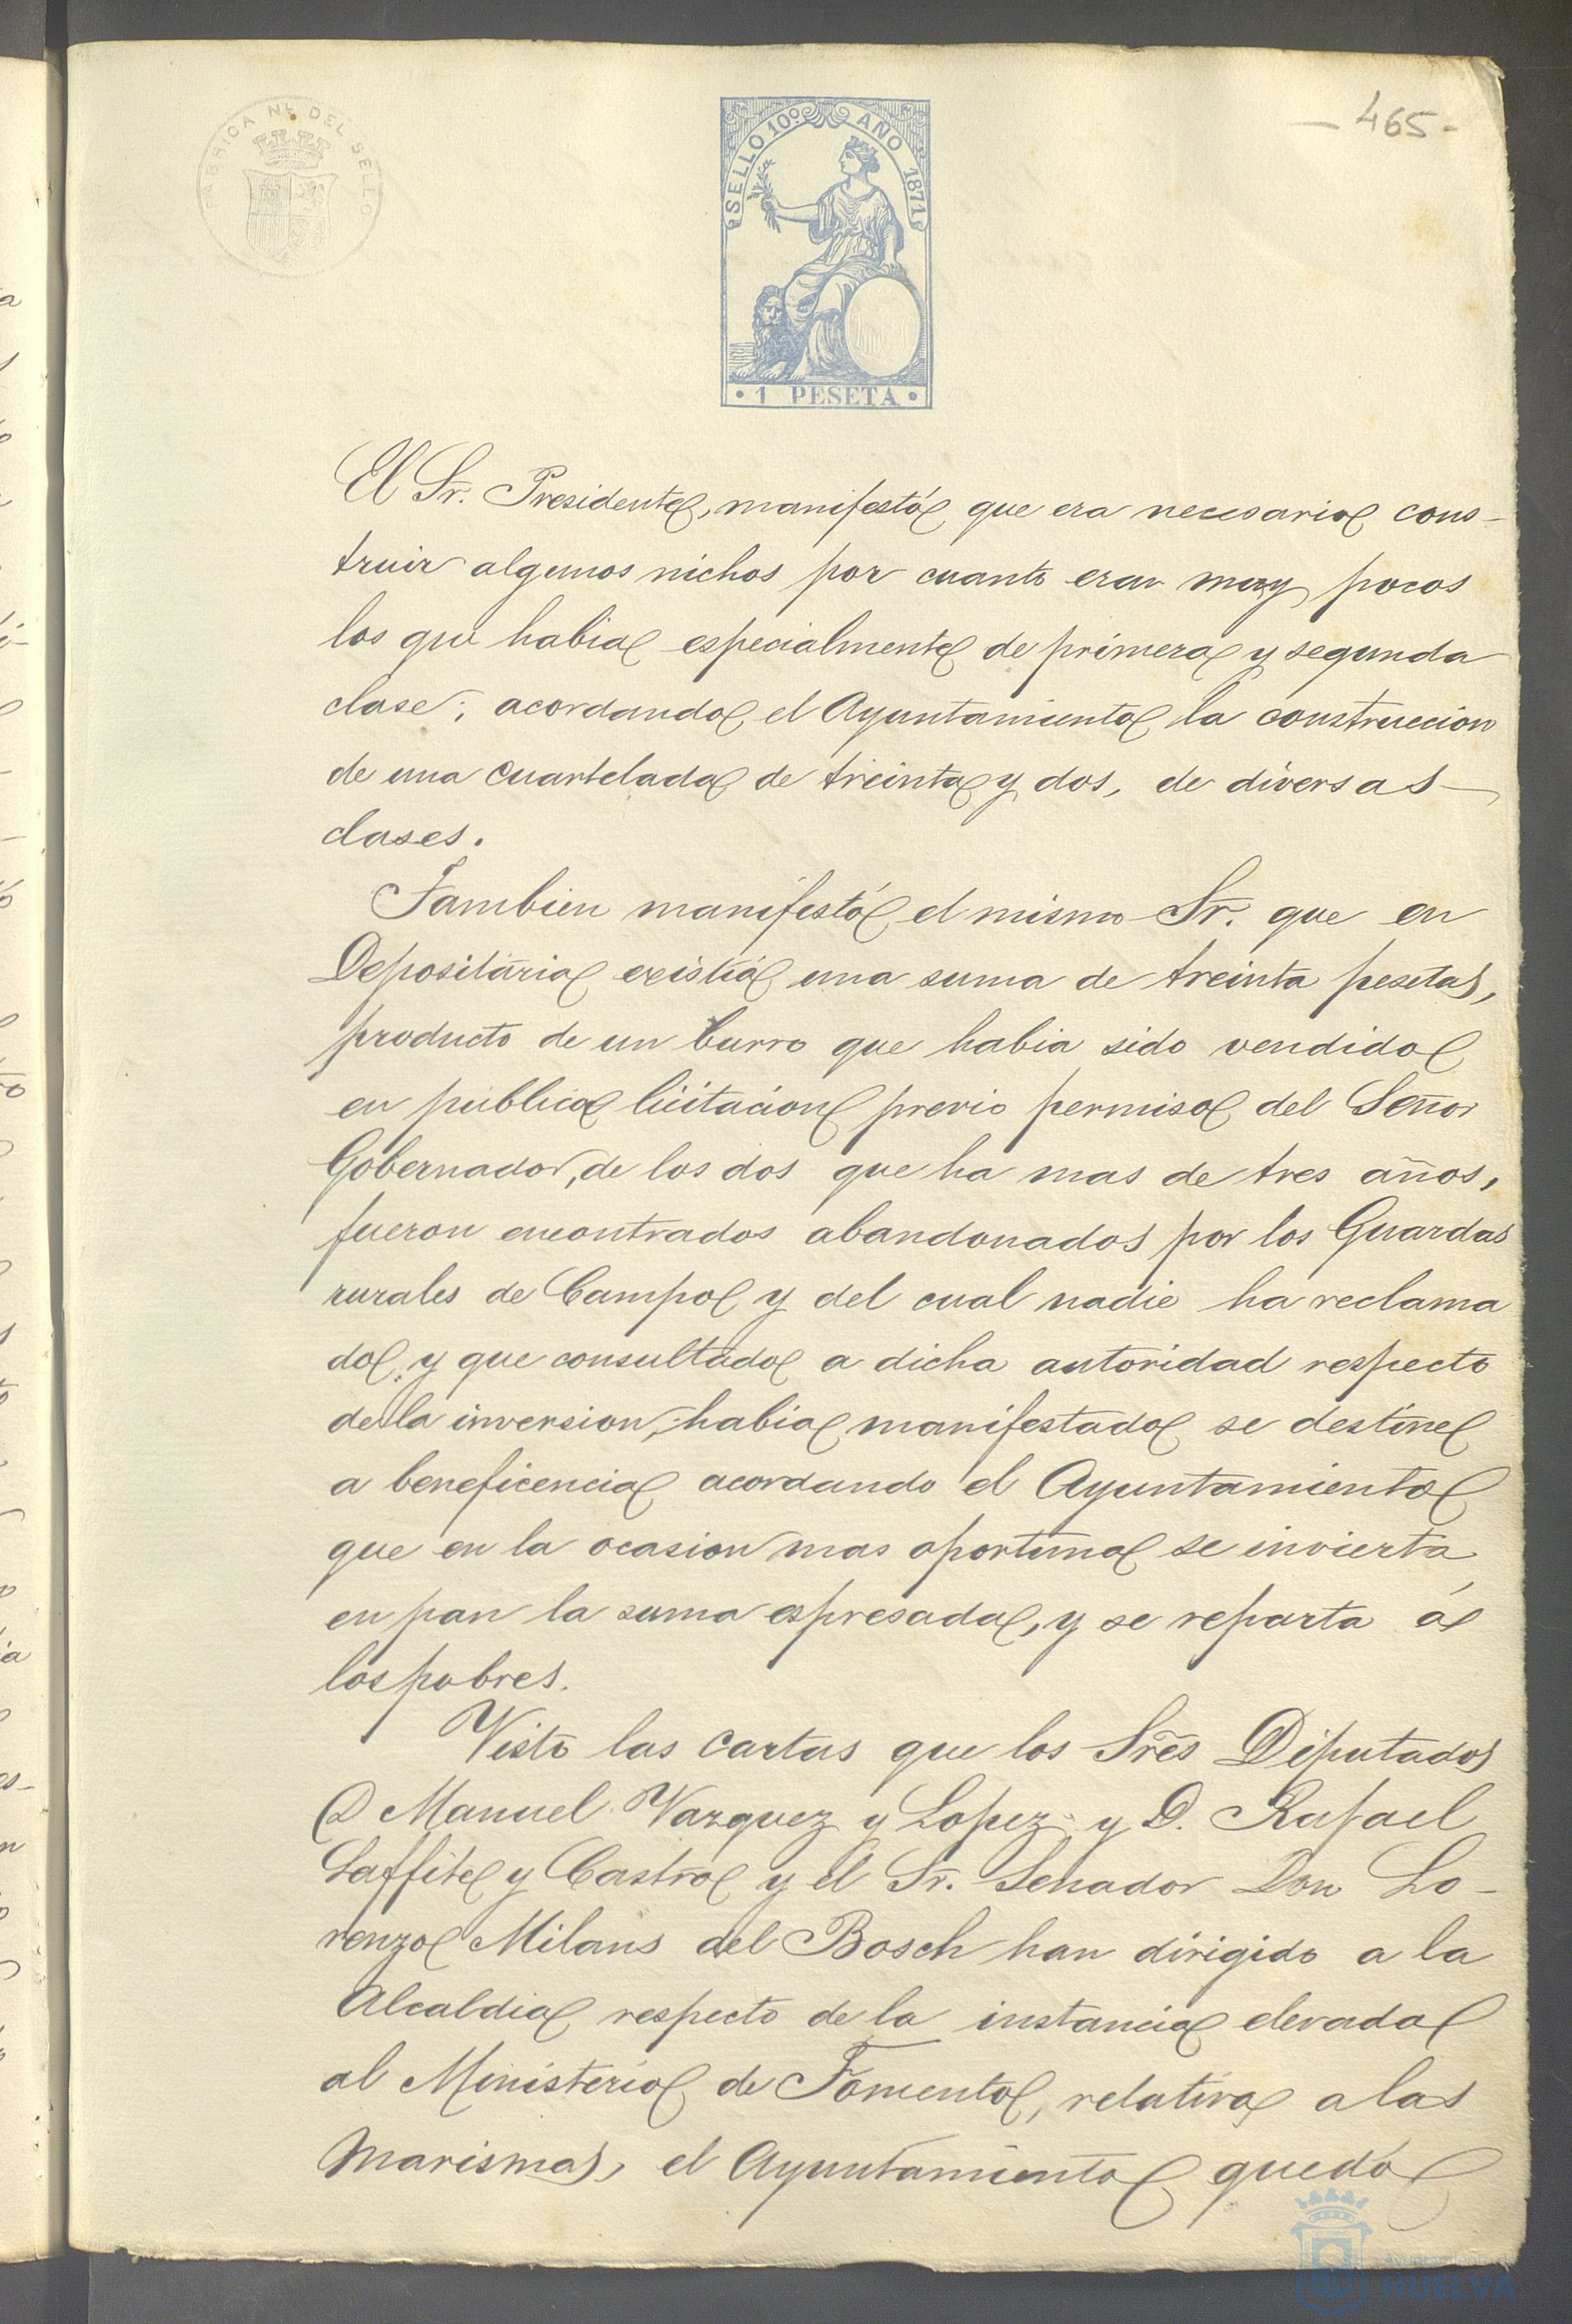 FABRICA NL. DEL SELLO
SELLO 10º AÑO 1871
• 1 PESETA •
- 465 -
El Sr. Presidente, manifestó que era necesario cons-
truir algunos nichos por cuanto eran muy pocos
los que habia especialmente de primera y segunda
clase; acordando el Ayuntamiento la construccion
de una cuartelada de treinta y dos, de diversas
clases.
Tambien manifestó el mismo Sr. que en
Depositaria existiá una suma de treinta pesetas,
producto de un burro que habia sido vendido
en publica licitacion previo permiso del Señor
Gobernador, de los dos que ha mas de tres años,
fueron encontrados abandonados por los Guardas
rurales de Campo y del cual nadie ha reclama
do, y que consultado a dicha autoridad respecto
de la inversion, habia manifestado se destine
a beneficencia acordando el Ayuntamiento
que en la ocasion mas oportuna se invierta
en pan la suma espresada, y se reparta á
los pobres.
Visto las cartas que los Sres Diputados
D Manuel Vazquez y Lopez y D. Rafael
Laffite y Castro y el Sr. Senador Don Lo-
renzo Milans del Bosch han dirigido a la
Alcaldia respecto de la instancia elevada
al Ministerio de Fomento, relativa a las
Marismas, el Ayuntamiento quedó
HUELVA